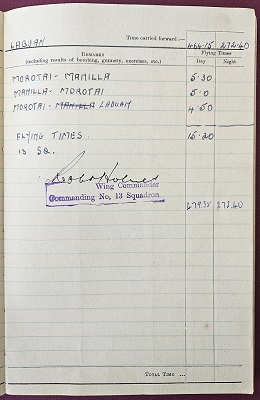 LABUAN
Time carried forward:— 464·15 272·40
REMARKS
(including results of bombing, gunnery, exercises, etc.)
Flying Times
Day Night
MOROTAI - MANILLA 5·30
MANILLA - MOROTAI 5·0
MOROTAI - MANILLA LABUAN 4·50
FLYING TIMES. 15·20
13 SQ.
Wing Commander
Commanding No. 13 Squadron
479·35 272·40
TOTAL TIME ...